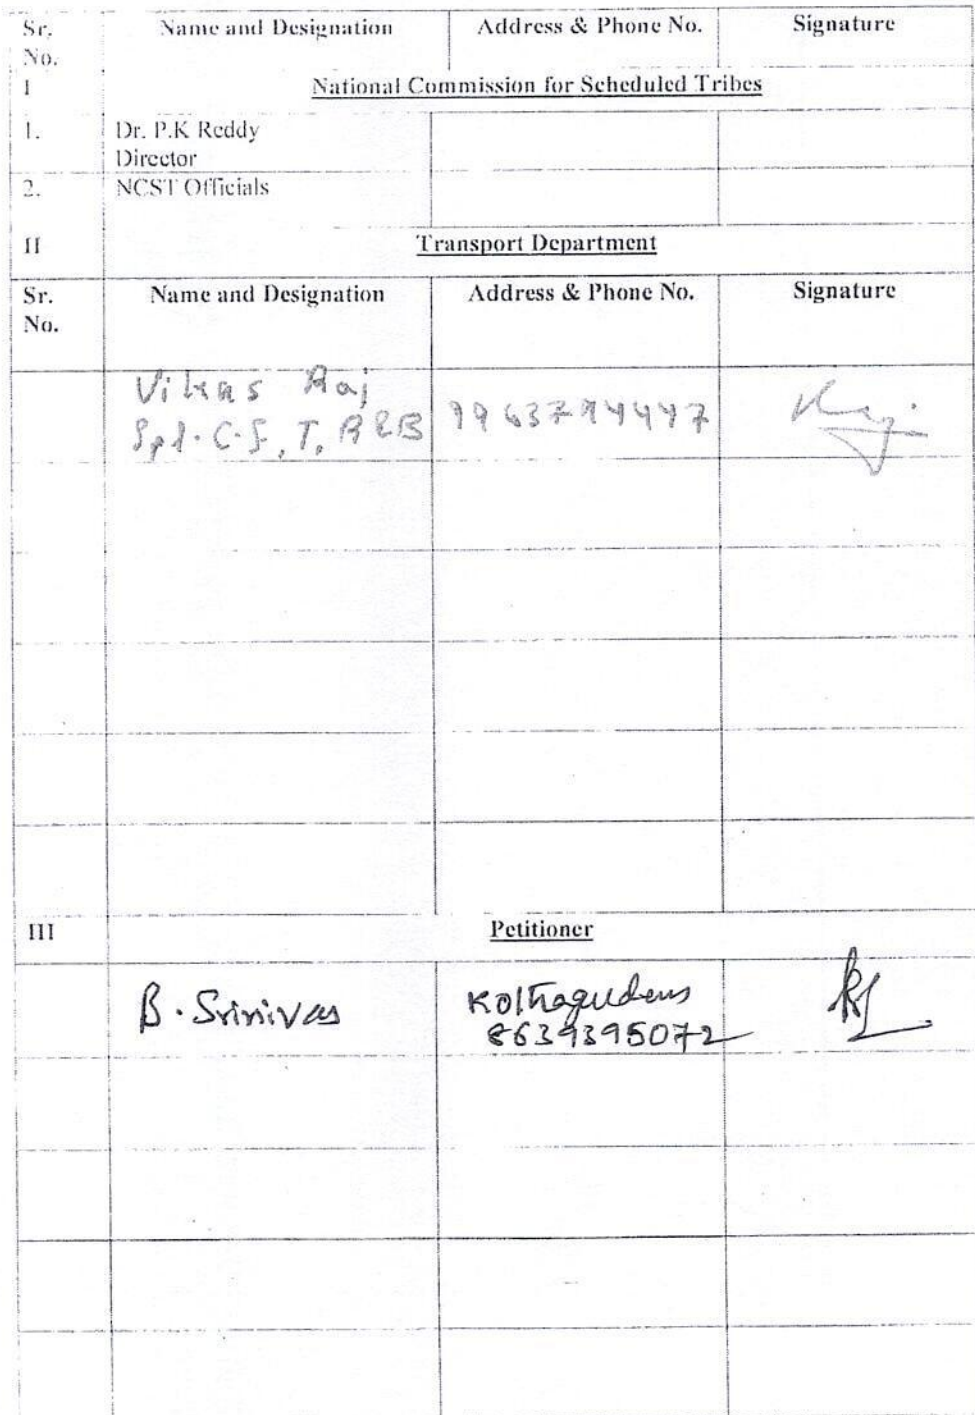 Sr. No. Name and Designation Address & Phone No. Signature
I National Commission for Scheduled Tribes
1. Dr. P.K Reddy
Director
2. NCST Officials
II Transport Department
Sr. No. Name and Designation Address & Phone No. Signature
Vikas Raj
Spl. C.S, T, R&B
III Petitioner
B. Srinivas Kothagudem
8639395072